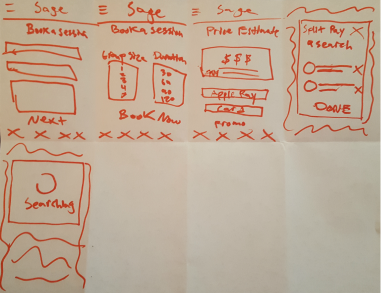 Sage
Book a session
Next
Sage
Book a session
Group Size
Duration
30
60
90
120
Book Now
Sage
Price Estimate
$$$
Apple Pay
Card
promo
Split Pay
a search
DONE
Searching